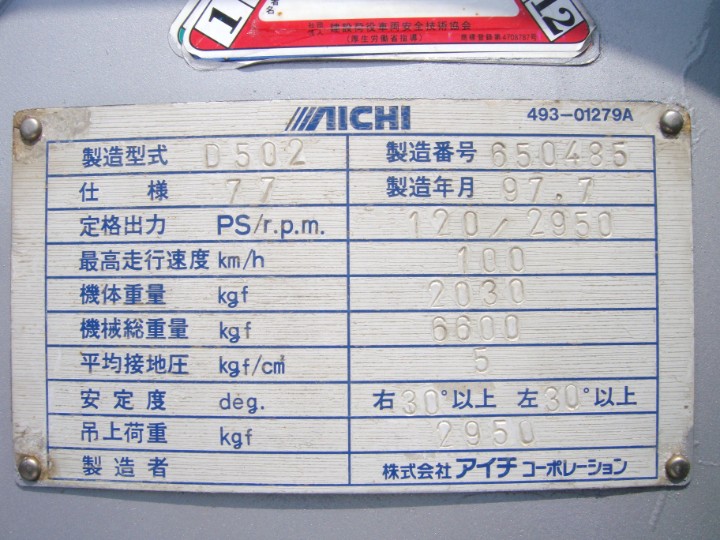 1
者名
12
社団法人 建設荷役車両安全技術協会
(厚生労働省指導)
商標登録第4706767号
AICHI
493-01279A
製造型式 D502 製造番号 650485
仕様 77 製造年月 97.7
定格出力 PS/r.p.m. 120/2950
最高走行速度 km/h 100
機体重量 kgf 2030
機械総重量 kgf 6600
平均接地圧 kgf/cm 5
安定度 deg. 右30°以上 左30°以上
吊上荷重 kgf 2950
製造者 株式会社アイチコーポレーション